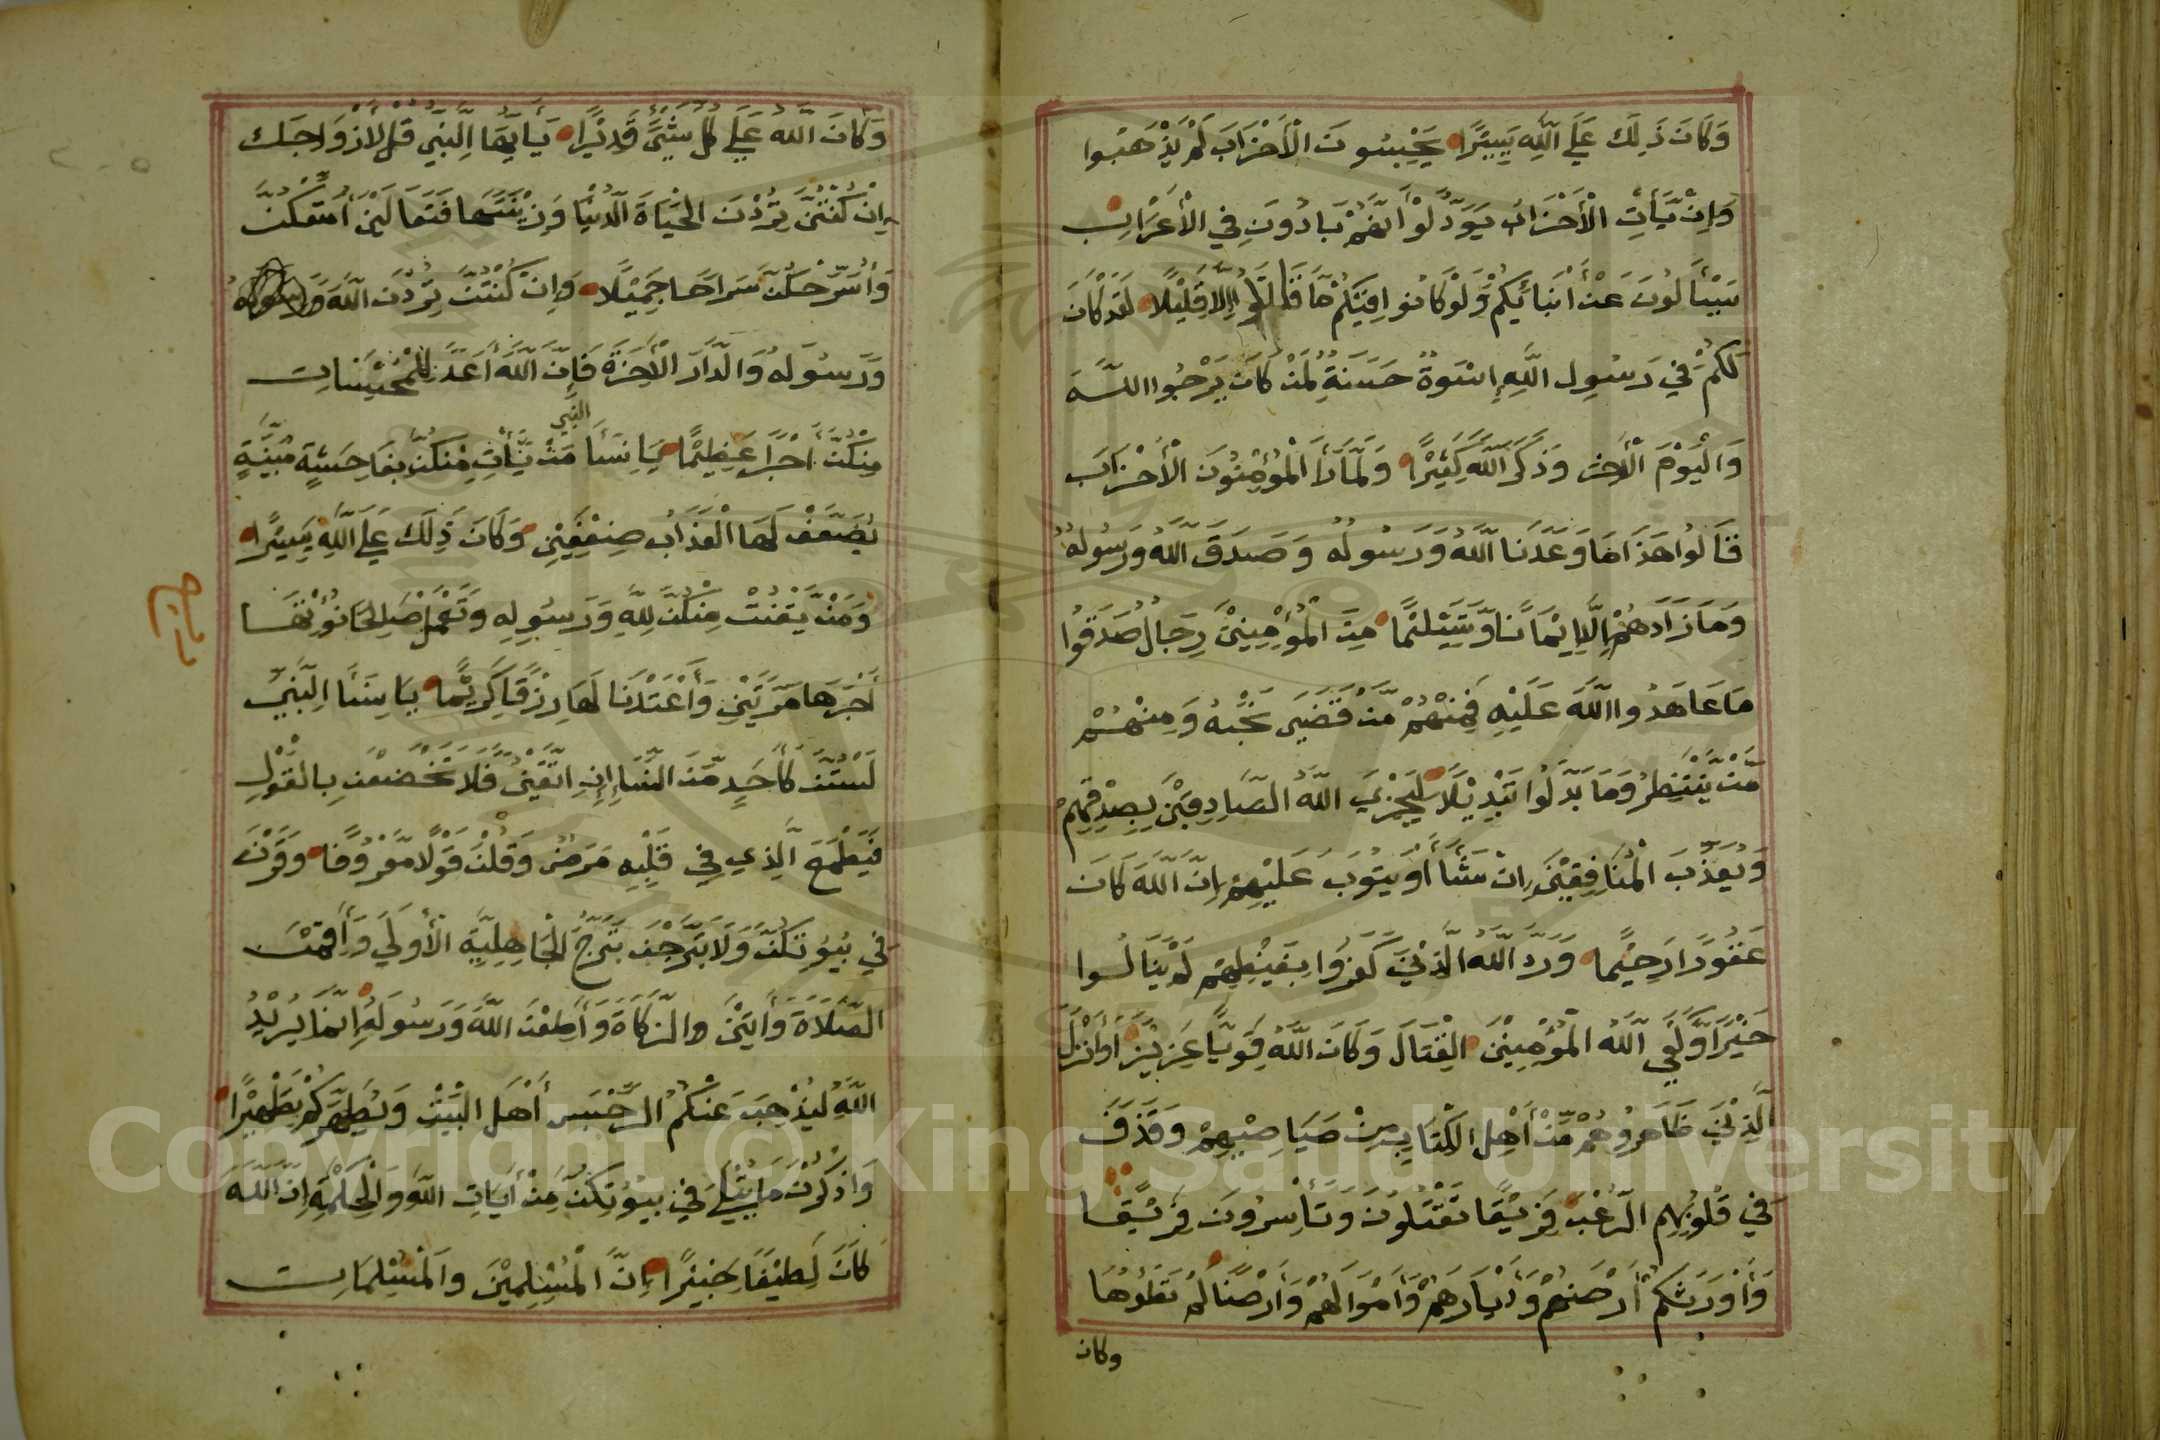 وَكَانَ ذَلِكَ عَلَي اللَّهِ يَسِيْرًا يَحْسِبُونَ الْأَحْزَابَ لَمْ يَذْهَبُوا
وَاِنْ يَّأتِ الْأَحْزَابُ يَوَدُّ لَوْ أَنَّهُمْ بَادُونَ فِي الْأَعْرَابِ
يَسْأَلُونَ عَنْ أَنْبَائِكُمْ وَلَوْ كَانُو افِيْكُمْ مَّا قَاتَلُوْا اِلَّا قَلِيْلًا لَقَدْ كَانَ
لَكُمْ فِي رَسُولِ اللَّهِ اِسْوَةٌ حَسَنَةٌ لِّمَنْ كَانَ يَرْجُوا اللَّهَ
وَالْيَوْمَ الْآخِرَ وَذَكَرَ اللَّهَ كَثِيْرًا وَلَمَّا رَأَ الْمُؤْمِنُونَ الْأَحْزَابَ
قَالُوا هَذَا مَا وَعَدَنَا اللَّهُ وَرَسُولُهُ وَصَدَقَ اللَّهُ وَرَسُولُهُ
وَمَا زَادَهُمْ اِلَّا اِيْمَانًا وَّتَسْلِيْمًا مِنَ الْمُؤْمِنِيْنَ رِجَالٌ صَدَقُوا
مَا عَاهَدُوا اللَّهَ عَلَيْهِ فَمِنْهُمْ مَّنْ قَضَي نَحْبَهُ وَمِنْهُمْ
مَّنْ يَّنْتَظِرُ وَمَا بَدَّلُوا تَبْدِيْلًا لِيَجْزِيَ اللَّهُ الصَّادِقِيْنَ بِصِدْقِهِمْ
وَيُعَذِّبَ الْمُنَافِقِيْنَ اِنْ شَآءَ أَوْ يَتُوبَ عَلَيْهِمْ اِنَّ اللَّهَ كَانَ
غَفُورًا رَحِيْمًا وَرَدَّ اللَّهُ الَّذِيْنَ كَفَرُوا بِغَيْظِهِمْ لَمْ يَنَالُوا
خَيْرًا وَكَفَي اللَّهُ الْمُؤْمِنِيْنَ الْقِتَالَ وَكَانَ اللَّهُ قَوِيًّا عَزِيْزًا وَأَنْزَلَ
الَّذِيْنَ ظَاهَرُوهُمْ مِّنْ أَهْلِ الْكِتَابِ مِنْ صَيَاصِيْهِمْ وَقَذَفَ
فِي قُلُوبِهِمُ الرُّعْبَ فَرِيْقًا تَقْتُلُونَ وَتَأْسِرُونَ فَرِيْقًا
وَأَوْرَثَكُمْ أَرْضَهُمْ وَدِيَارَهُمْ وَأَمْوَالَهُمْ وَأَرْضًا لَمْ تَطَئُوهَا
وكان
وَكَانَ اللَّهُ عَلَي كُلِّ شَيْئٍ قَدِيْرًا يَأَيُّهَا النَّبِيُّ قُلْ لِأَزْوَاجِكَ
اِنْ كُنْتُنَّ تُرِدْنَ الْحَيَاةَ الدُّنْيَا وَزِيْنَتَهَا فَتَعَالَيْنَ أُمَتِّعْكُنَّ
وَأُسَرِّحْكُنَّ سَرَاحًا جَمِيْلًا وَاِنْ كُنْتُنَّ تُرِدْنَ اللَّهَ
وَرَسُولَهُ وَالدَّارَ الْآخِرَةَ فَاِنَّ اللَّهَ أَعَدَّ لِلْمُحْسِنَاتِ
مِنْكُنَّ أَجْرًا عَظِيْمًا يَا نِسَآءَ النبي مَنْ يَّأْتِ مِنْكُنَّ بِفَاحِشَةٍ مُبَيِّنَةٍ
يُضَعَفْ لَهَا الْعَذَابُ ضِعْفَيْنِ وَكَانَ ذَلِكَ عَلَي اللَّهِ يَسِيْرًا
وَمَنْ يَّقْنُتْ مِنْكُنَّ لِلَّهِ وَرَسُولِهِ وَتَعْمَلْ صَالِحًا نُؤْتِهَا
أَجْرَهَا مَرَّتَيْنِ وَأَعْتَدْنَا لَهَا رِزْقًا كَرِيْمًا يَا نِسَآءَ النَّبِيِّ
لَسْتُنَّ كَأَحَدٍ مِّنَ النِّسَآءِ اِنِ اتَّقَيْتُنَّ فَلَا تَخْضَعْنَ بِالْقَوْلِ
فَيَطْمَعَ الَّذِي فِي قَلْبِهِ مَرَضٌ وَقُلْنَ قَوْلًا مَّعْرُوفًا وَقَرْنَ
فِي بُيُوتِكُنَّ وَلَا تَبَرَّجْنَ تَبَرُّجَ الْجَاهِلِيَّةِ الْأُولَي وَأَقِمْنَ
الصَّلَاةَ وَآتِيْنَ الزَّكَاةَ وَأَطِعْنَ اللَّهَ وَرَسُولَهُ اِنَّمَا يُرِيْدُ
اللَّهُ لِيُذْهِبَ عَنْكُمُ الرِّجْسَ أَهْلَ الْبَيْتِ وَيُطَهِّرَكُمْ تَطْهِيْرًا
وَاذْكُرْنَ مَا يُتْلَي فِي بُيُوتِكُنَّ مِنْ أَيَاتِ اللَّهِ وَالْحِكْمَةِ اِنَّ اللَّهَ
كَانَ لَطِيْفًا خَبِيْرًا اِنَّ الْمُسْلِمِيْنَ وَالْمُسْلِمَاتِ
Copyright © King Saud University